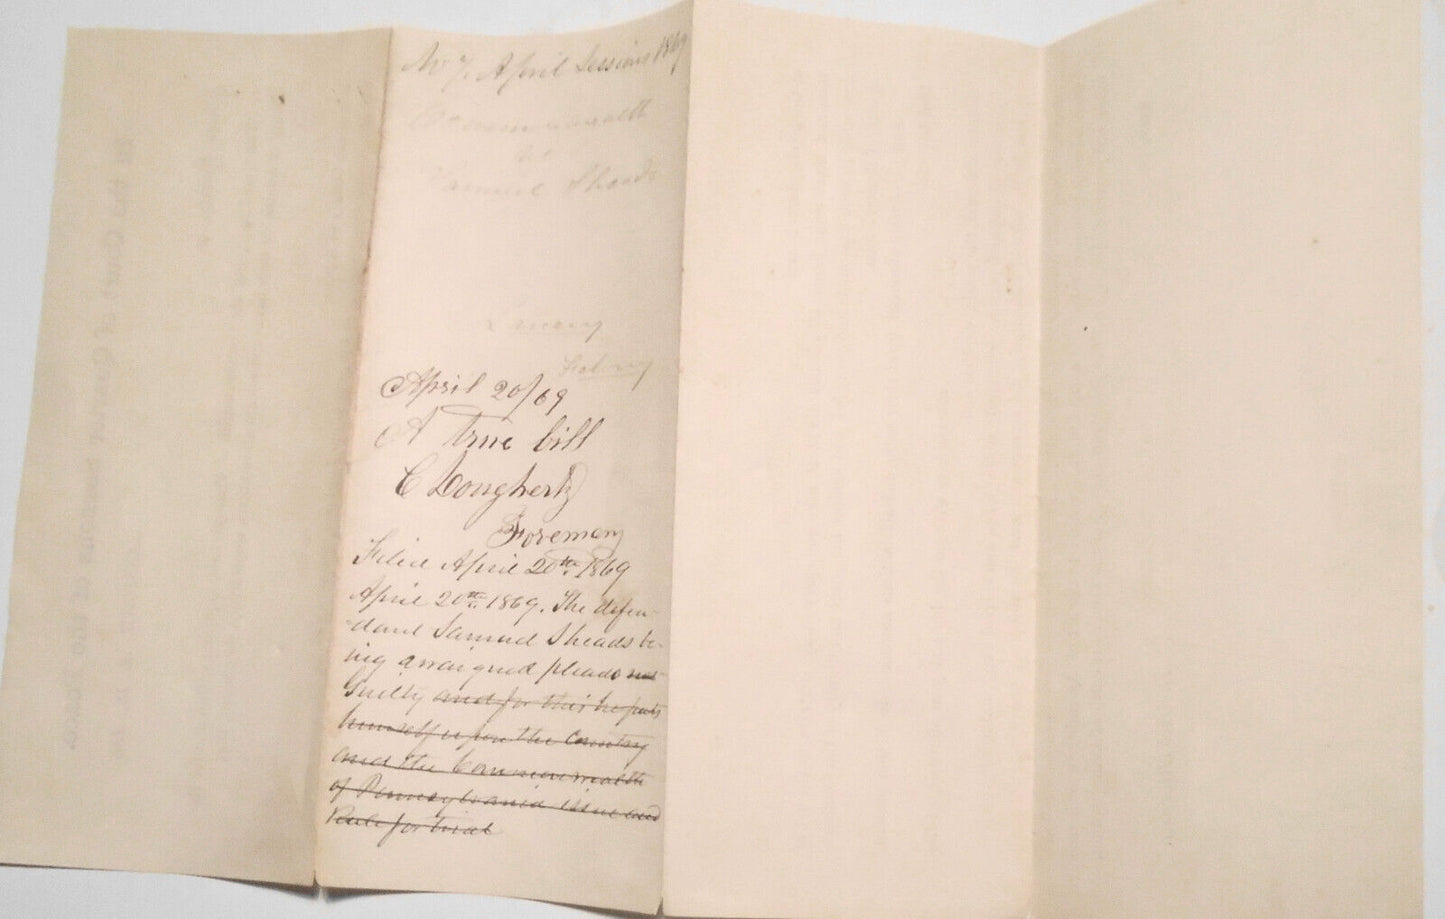 No 7. April Sessions 1869
Commonwealth
vs
Samuel Sheads
Larceny
April 20/69
A true bill
C Dougherty
Foreman
Filed April 20th 1869
April 20th 1869. The defen-
dant Samuel Sheads be-
ing arraigned pleads not
Guilty and for this he puts
himself upon the Country
and the Commonwealth
of Pennsylvania issue and
Rule for trial